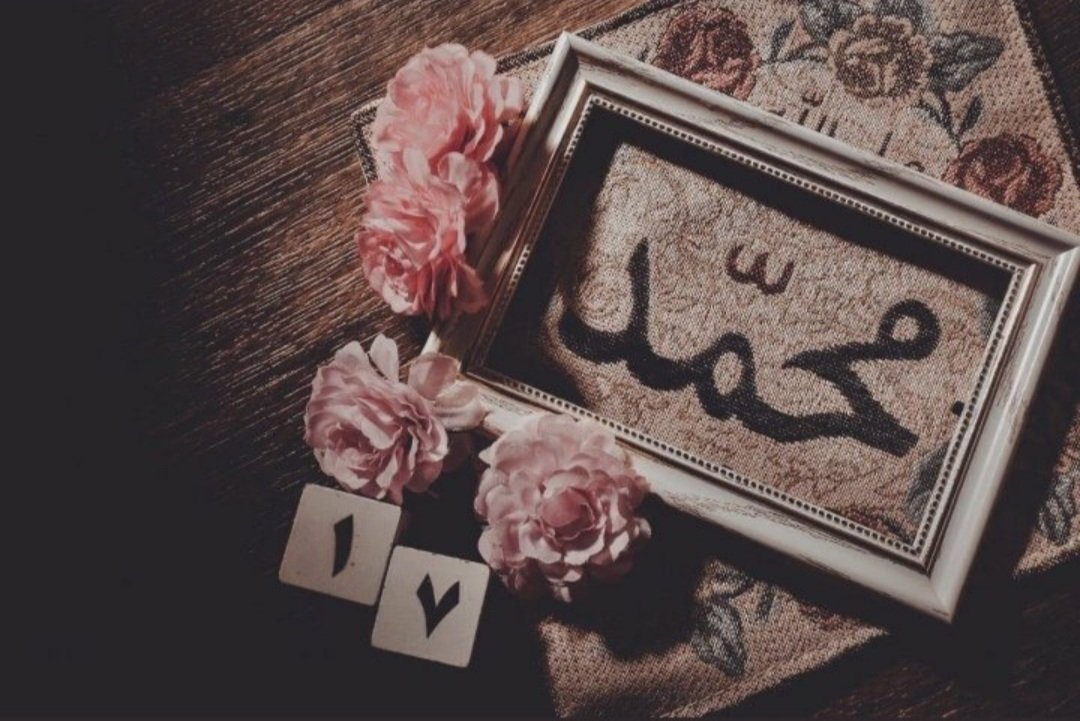 محمّد
١
٧